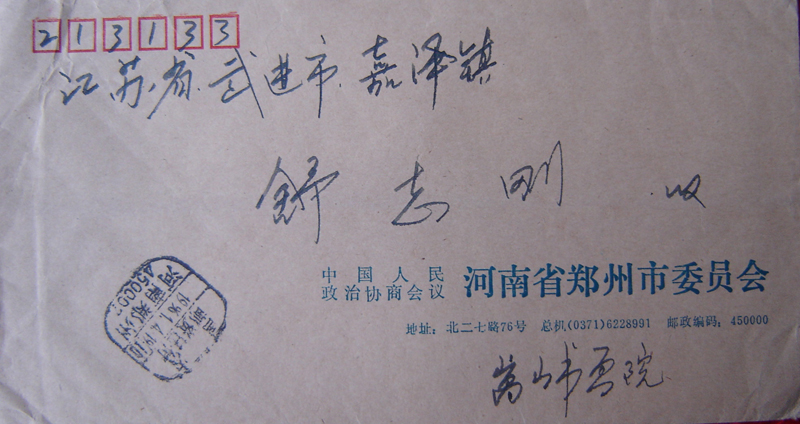 213133
江苏省武进市嘉泽镇
舒志刚 收
中国人民
政治协商会议 河南省郑州市委员会
地址：北二七路76号 总机(0371)6228991 邮政编码：450000
嵩山书画院
河南郑州